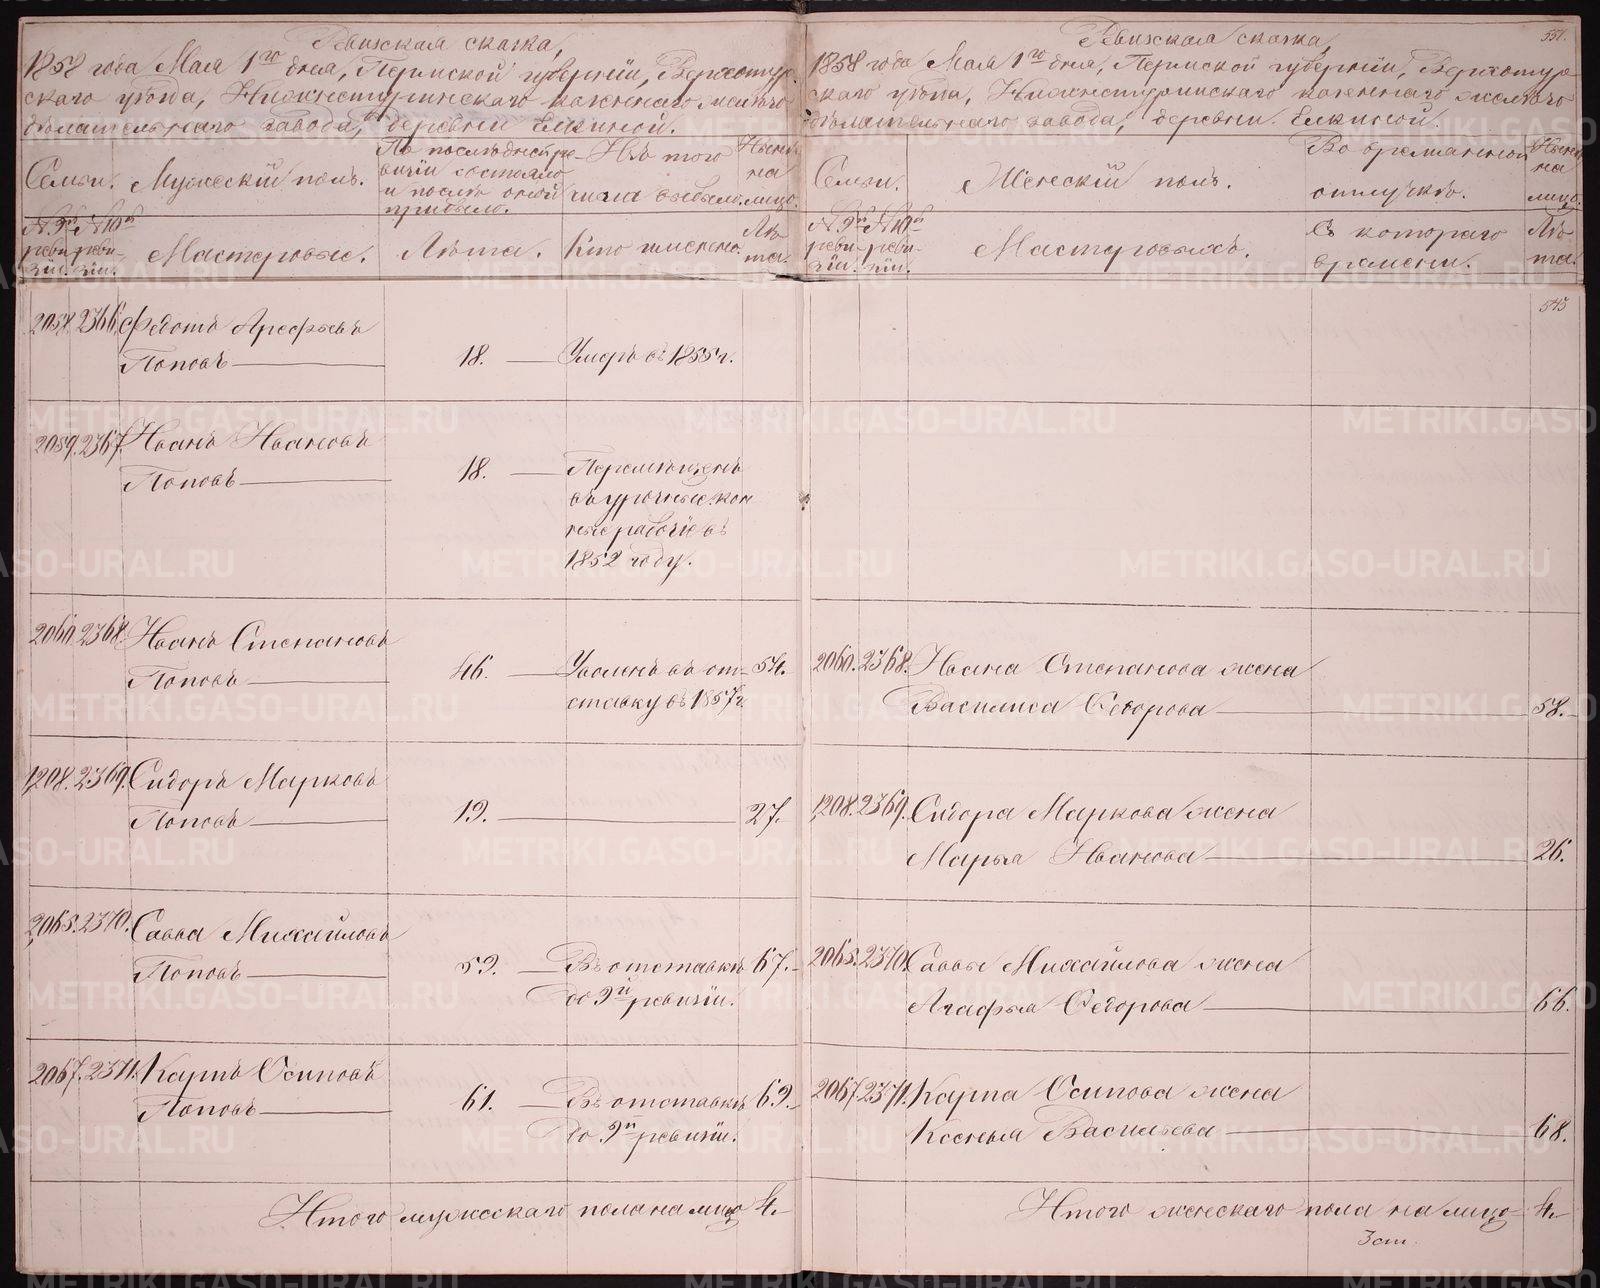 Ревизская сказка,
1858 года Мая 1го дня, Пермской губернiи, Верхотур-
скаго уѣзда, Нижнетуринскаго казеннаго желѣзо-
дѣлательнаго завода, деревни Елкиной.
Семьи.
Мужескiй полъ.
По последней ре-
визiи состояло
и послѣ оной
прибыло.
Изъ того
числа выбыло.
Нынѣ
на
лицо.
№ 9й
реви-
зiи.
№ 10й
реви-
зiи.
Мастеровые.
Лѣта.
Кто именно.
Лѣ-
та.
2058. 2366. Федотъ Арефьевъ
Поповъ 18. Умеръ въ 1855 г.
2059. 2367. Иванъ Ивановъ
Поповъ 18. Перемѣщенъ
въ урочные кон
ные рабочiе въ
1852 году.
2060. 2368. Иванъ Степановъ
Поповъ 46. Уволенъ въ от- 54.
ставку въ 1857 г.
1208. 2369. Сидоръ Марковъ
Поповъ 19. 27.
2065. 2370. Савва Михайловъ
Поповъ 59. Въ отставкѣ 67.
до 9й ревизiи.
2067. 2371. Карпъ Осиповъ
Поповъ 61. Въ отставкѣ 69.
до 9й ревизiи.
Итого мужескаго пола на лицо 4.
551.
Ревизская сказка,
1858 года Мая 1го дня, Пермской губернiи, Верхотур-
скаго уѣзда, Нижнетуринскаго казеннаго желѣзо-
дѣлательнаго завода, деревни Елкиной.
Семьи.
Женскiй полъ.
Во временной
отлучкѣ.
Нынѣ
на
лицо.
№ 9й
реви-
зiи.
№ 10й
реви-
зiи.
Мастеровыхъ.
Съ котораго
времени.
Лѣ-
та.
545
2060. 2368. Ивана Степанова жена
Василиса Федорова 58.
1208. 2369. Сидора Маркова жена
Марья Иванова 26.
2065. 2370. Саввы Михайлова жена
Агафья Федорова 66.
2067. 2371. Карпа Осипова жена
Ксенья Васильева 68.
Итого женскаго пола на лицо 4.
METRIKI.GASO-URAL.RU